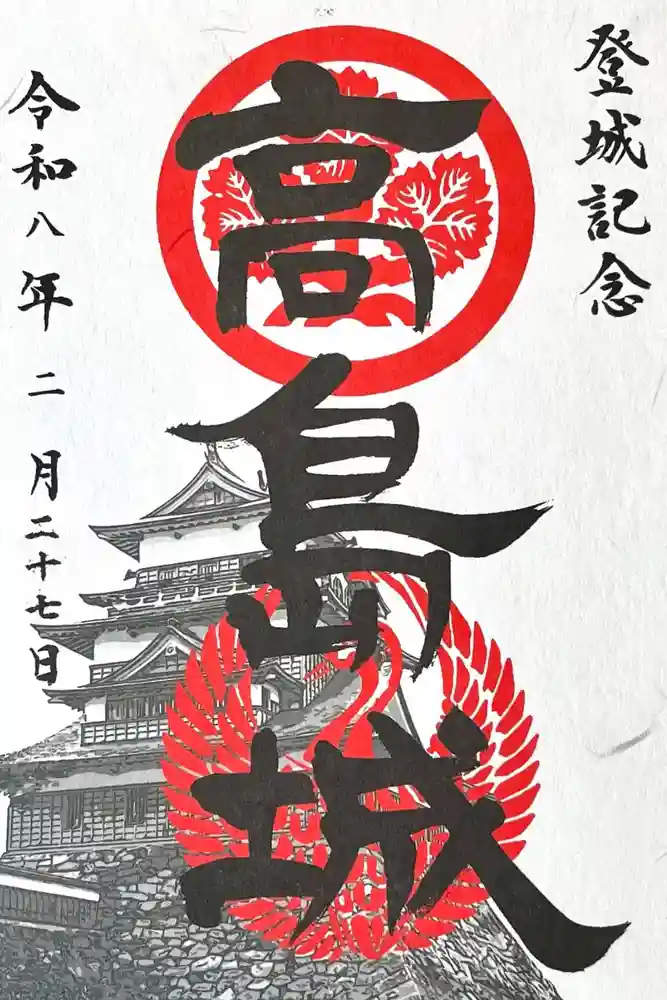 登城記念
高島城
令和八年二月二十七日